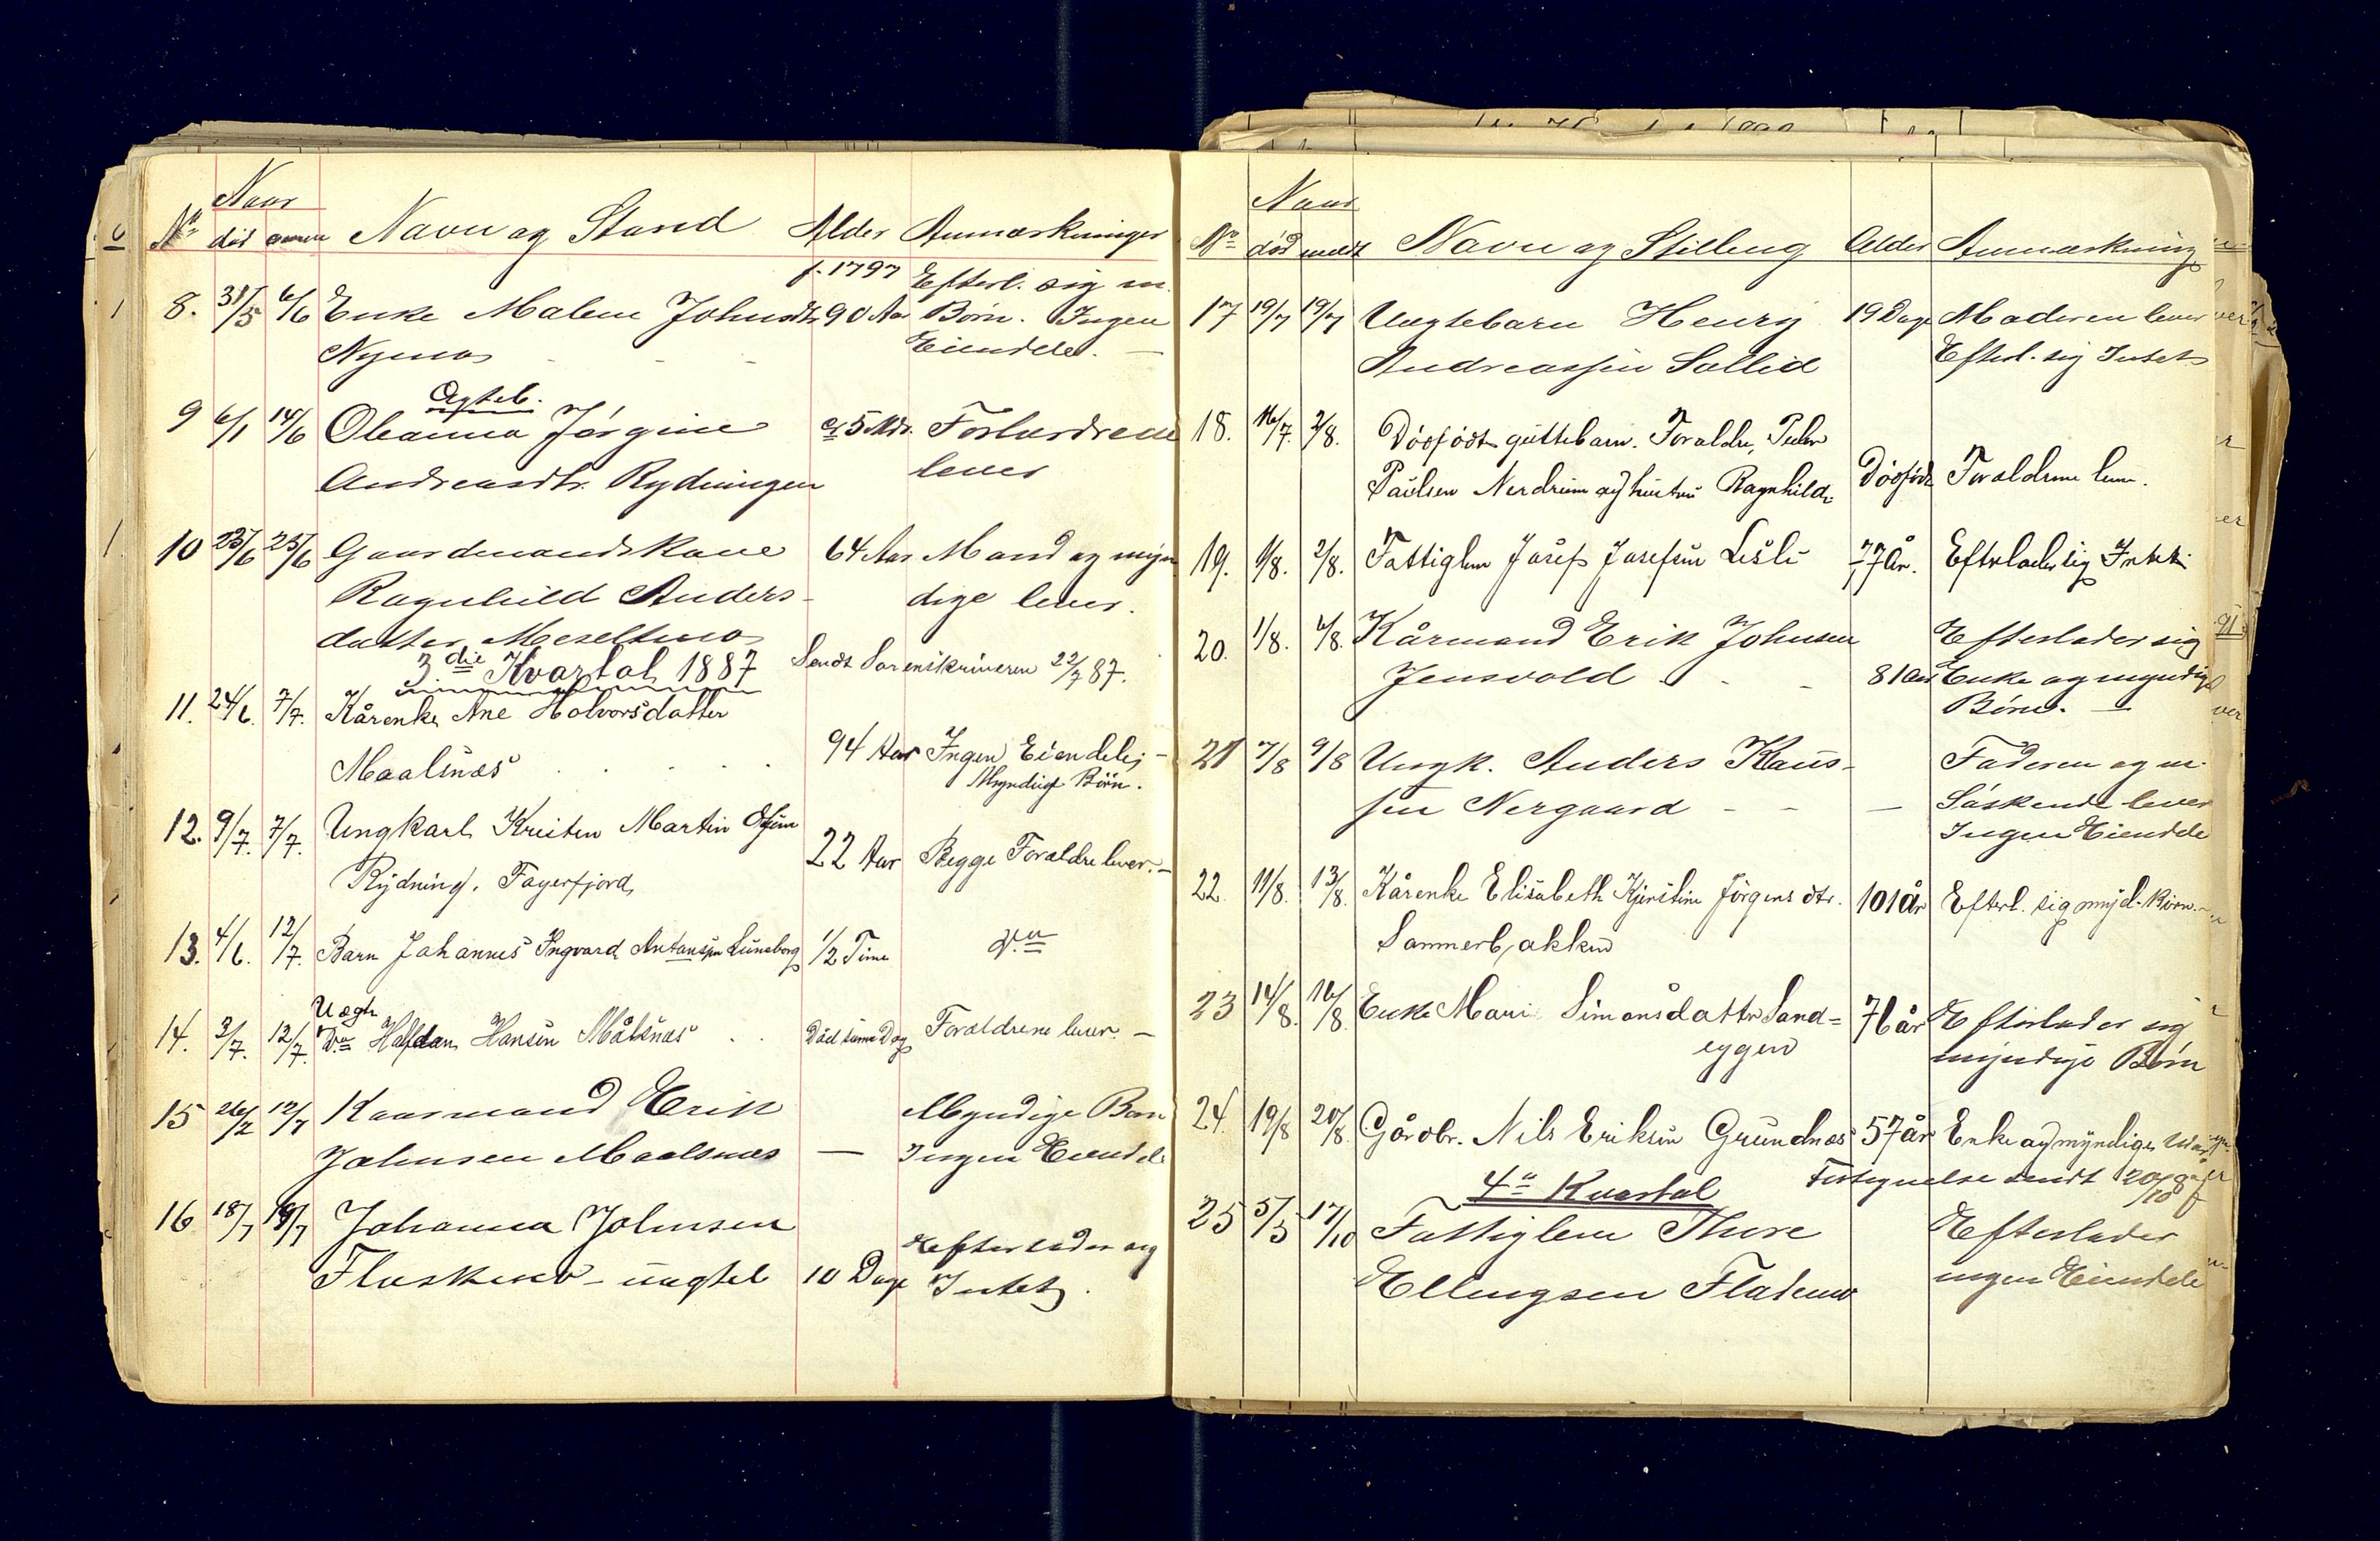 Naar
No død anm Navn og Stand Alder Anmærkninger
f. 1797 Efterl. sig m.
8. 31/5 6/6 Enke Malene Johnsdtr 90 Aar Børn. Ingen
Nymo - - - Eiendele. -
Ægteb.
9 6/1 14/6 Oleanna Jørgine 5 Mdr. Forældrene
Andreasdtr. Rydningen lever
10 23/6 25/6 Gaardmandskone 64 Aar Mand og myn
Ragnhild Anders- dige lever.
datter Meseltmo
3die Kvartal 1887 Sendt Sorenskriveren 22/7 87.
11. 24/6. 7/7. Kårenke Ane Holvorsdatter
Maalsnæs . . . . 94 Aar Ingen Eiendele; -
Myndige Børn.
12. 9/7. 7/7. Ungkarl Kristen Martin
Rydning, Fagerfjord, 22 Aar Begge Forældre lever. -
13. 4/6. 12/7. Barn Johannes Ingvard Antonsen Luneborg 1/2 Time Do
Uægte
14. 3/7. 12/7. Do Halfdan Hansen Målsnæs . . Død samme Dag Forældrene lever. -
15 26/2 12/7 Kaarmand Erik Myndige Børn
Johnsen Maalsnæs - Ingen Eiendele
16 18/7 19/7 Johanna Johnsen Efterlader sig
Flaskmo - uægteb 10 Dage Intet.
Naar
No død meldt Navn og Stilling Alder Anmærkning
17 19/7 19/7 Uægtebarn Henry 19 Dage Moderen lever
Andreassen Sollid Efterl. sig Intet
18. 16/7. 2/8. Dødfødt guttebarn. Forældre, Peder
Paulsen Nerdrum og hustru Ragnhild. Dødfødt Forældrene lever.
19. 1/8. 2/8. Fattiglem Josef Josefsen Lesli 77 år. Efterlader sig Intet.
20. 1/8. 4/8. Kårmand Erik Johnsen Efterlader sig
Jensvold . - - 81 Aar Enke og myndige
Børn. -
21 7/8 9/8 Ungk. Anders Klaus- Faderen og m.
sen Nergaard - - - Søskende lever
Ingen Eiendele
22. 11/8. 13/8. Kårenke Elisabeth Kjerstine Jørgensdtr. 101 år Efterl. sig mynd. Børn.
Sommerbakken
23 14/8. 16/8. Enke Mari Simonsdatter Sand= 76 år Efterlader sig
eggen myndige Børn
24. 19/8 20/8. Gårdbr. Nils Eriksen Grundnæs 57 år Enke og myndige
4de Kvartal Fortegnelse sendt 20/10
25 5/5 17/10 Fattiglem Thore Efterlader
Ellingsen Flatmo ingen Eiendele